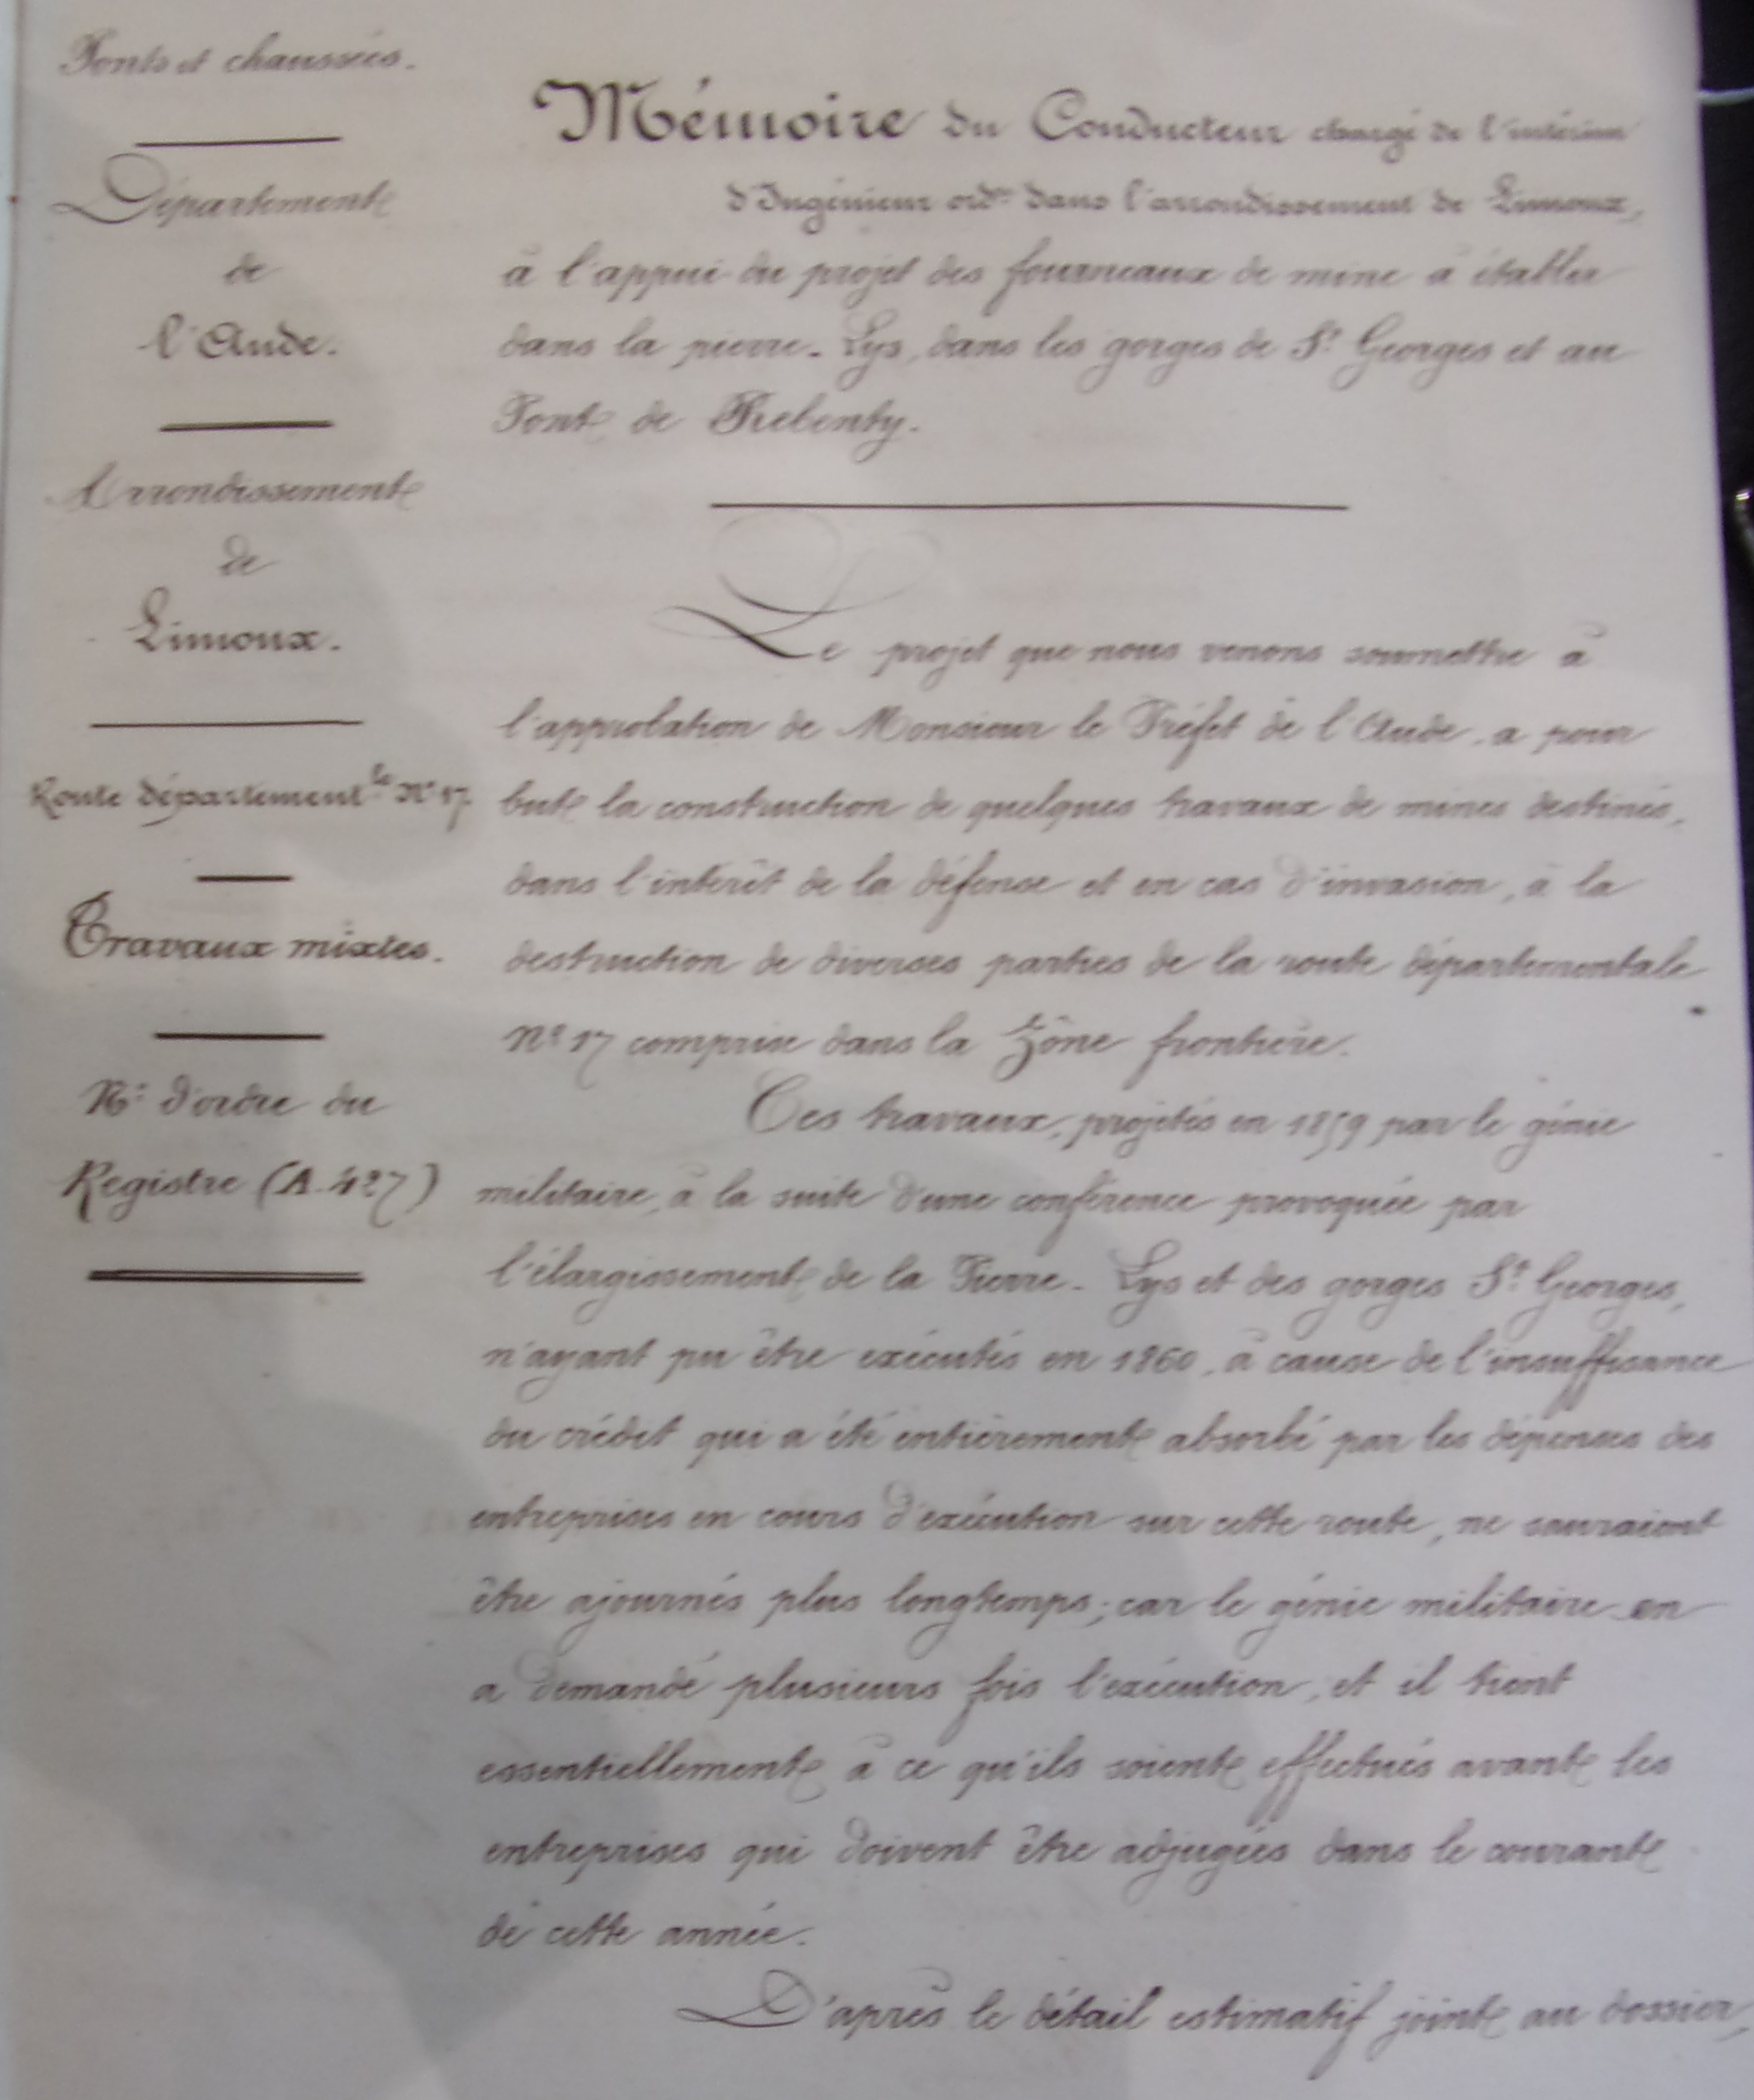 Ponts et chaussées.
Département
de
l'Aude.
Arrondissement
de
Limoux.
Route département.le N° 17.
Travaux mixtes.
N° d'ordre du
Registre (A. 427)
Mémoire du Conducteur chargé de l'intérim
d'Ingénieur ord.re dans l'arrondissement de Limoux,
à l'appui du projet des fourneaux de mine à établir
dans la pierre-Lys, dans les gorges de St Georges et au
Pont de Rebenty.
Le projet que nous venons soumettre à
l'approbation de Monsieur le Préfet de l'Aude, a pour
but la construction de quelques travaux de mines destinés,
dans l'intérêt de la défense et en cas d'invasion, à la
destruction de diverses parties de la route départementale
N° 17 comprise dans la Zône frontière.
Ces travaux, projetés en 1859 par le génie
militaire, à la suite d'une conférence provoquée par
l'élargissement de la Pierre-Lys et des gorges St Georges,
n'ayant pu être exécutés en 1860, à cause de l'insuffisance
du crédit qui a été entièrement absorbé par les dépenses des
entreprises en cours d'exécution sur cette route, ne sauraient
être ajournés plus longtemps; car le génie militaire en
a demandé plusieurs fois l'exécution, et il tient
essentiellement à ce qu'ils soient effectués avant les
entreprises qui doivent être adjugées dans le courant
de cette année.
D'après le détail estimatif joint au dossier,